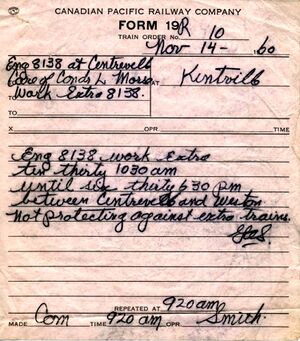 CANADIAN PACIFIC RAILWAY COMPANY
FORM 19R
TRAIN ORDER No. 10
Nov 14 - 60
Eng 8138 at Centreville
Care of Condr L. Morse
Kentville
Work Extra 8138.
TO
TO
X OPR. TIME
Eng 8138 work Extra
ten thirty 1030 am
until six thirty 630 pm
between Centreville and Weston
Not protecting against extra trains.
REPEATED AT 920 am
MADE Com TIME 920 am OPR Smith.